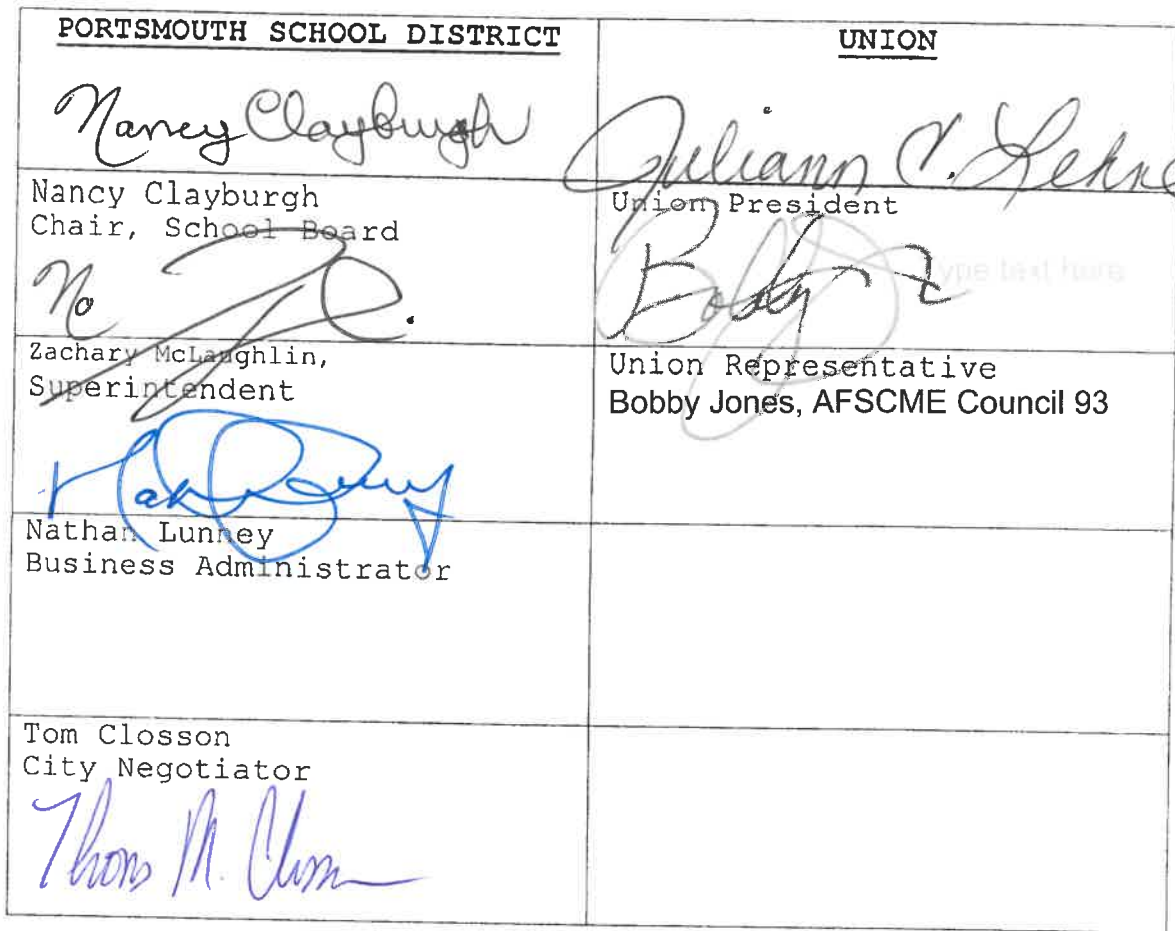 PORTSMOUTH SCHOOL DISTRICT
UNION
Nancy Clayburgh
Juliann C.
Nancy Clayburgh
Chair, School Board
Union President
Bobby
Type text here
Zachary McLaughlin,
Superintendent
Union Representative
Bobby Jones, AFSCME Council 93
Nathan Lunney
Business Administrator
Tom Closson
City Negotiator
Thomas M. Closson